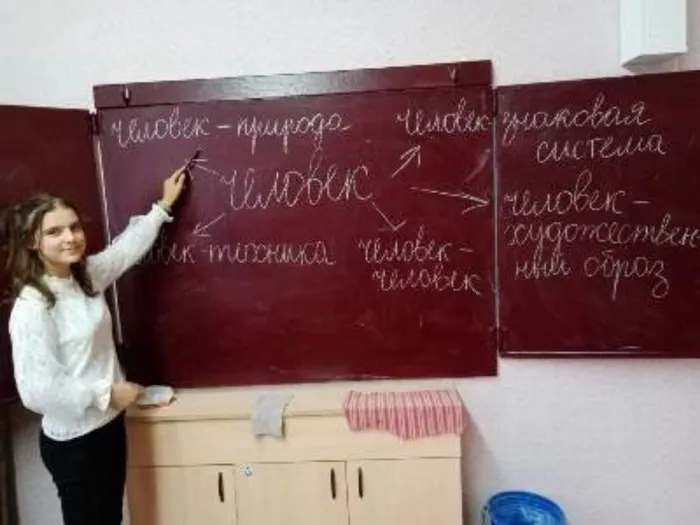 человек - природа
человек знаковая
система
человек
человек -
художествен-
ный образ
век - техника
человек -
человек